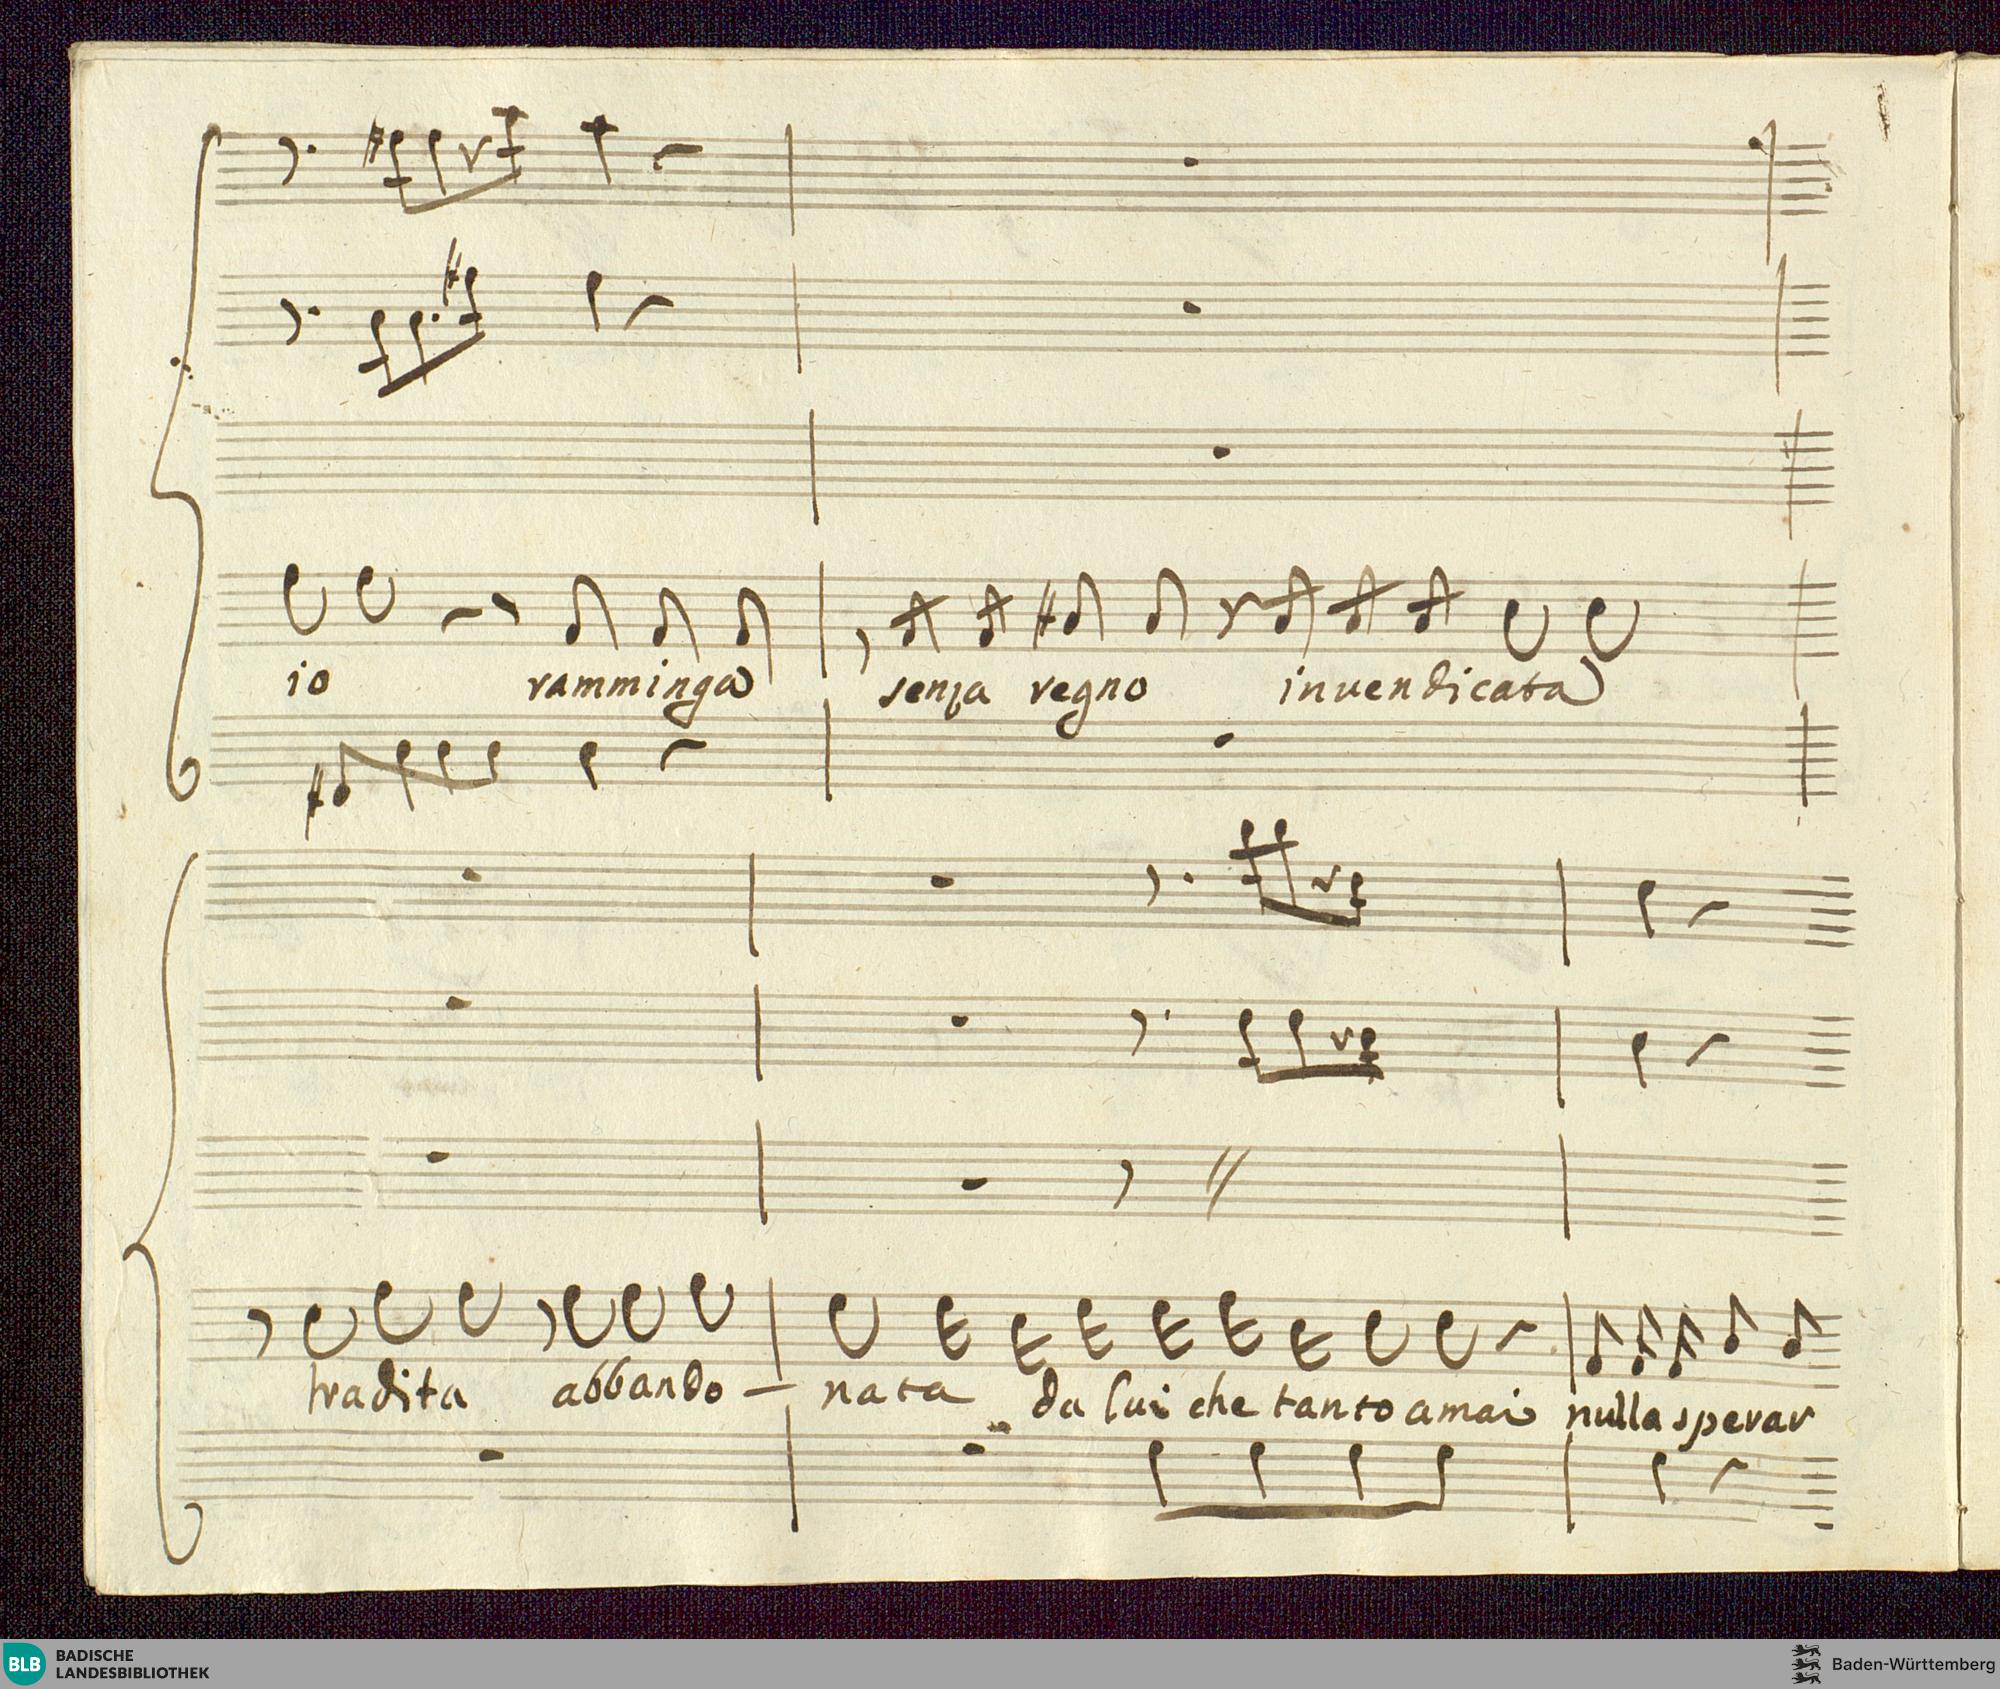 io ramminga senza regno invendicata
tradita abbando - nata da lui che tanto amai nulla sperar
BLB BADISCHE
LANDESBIBLIOTHEK
Baden-Württemberg